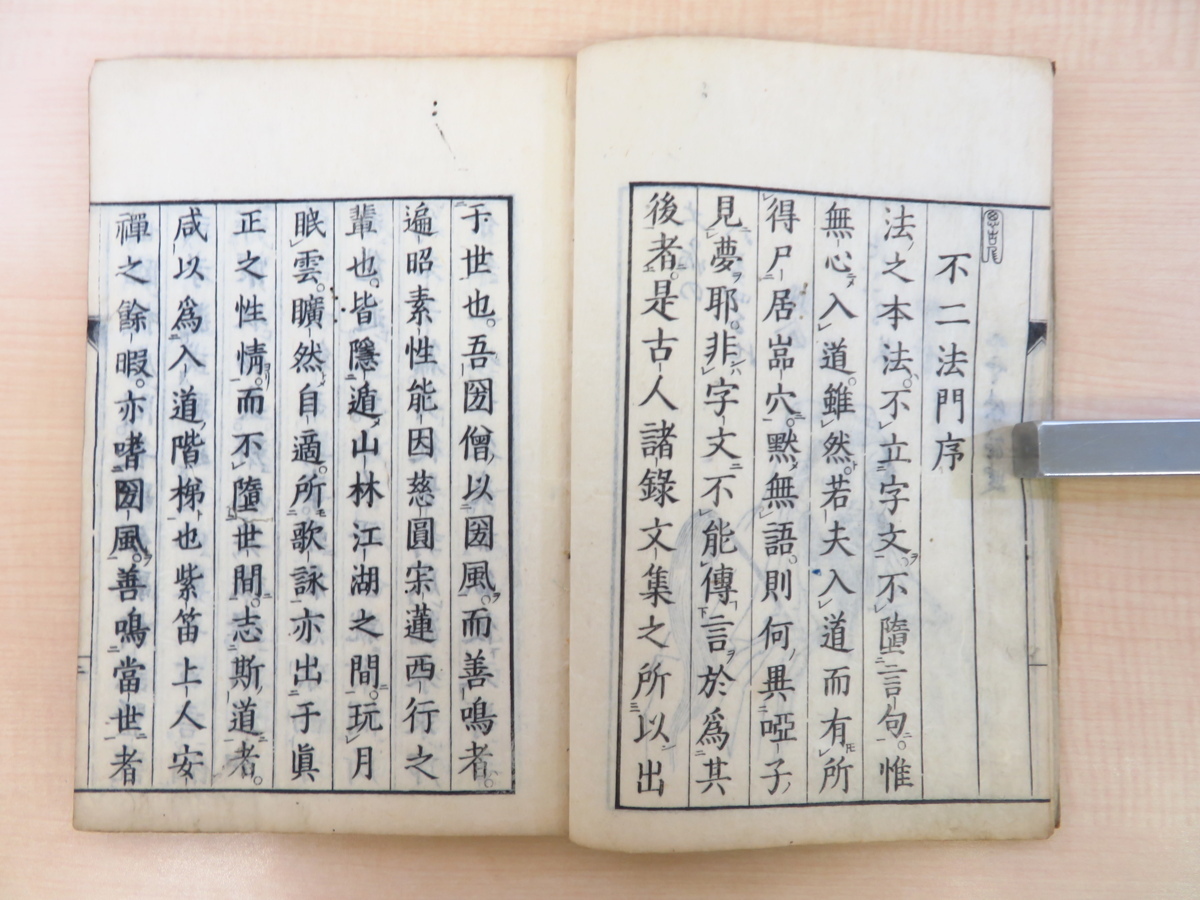 不二法門序
法之本法。不立字文。不墮言句。惟
無心入道。雖然若夫入道而有所
得尸居嵓穴。默無語。則何異啞子
見夢耶。非字文不能傳言於爲其
後者。是古人諸錄文集之所以出
于世也。吾圀僧以圀風。而善鳴者。
遍昭素性能因慈圓宗蓮西行之
輩也。皆隱遁山林江湖之間。玩月
眠雲。曠然自適。所歌詠亦出于眞
正之性情。而不墮世間。志斯道者。
咸以爲入道階梯也紫笛上人安
禪之餘暇。亦嗜圀風。善鳴當世者